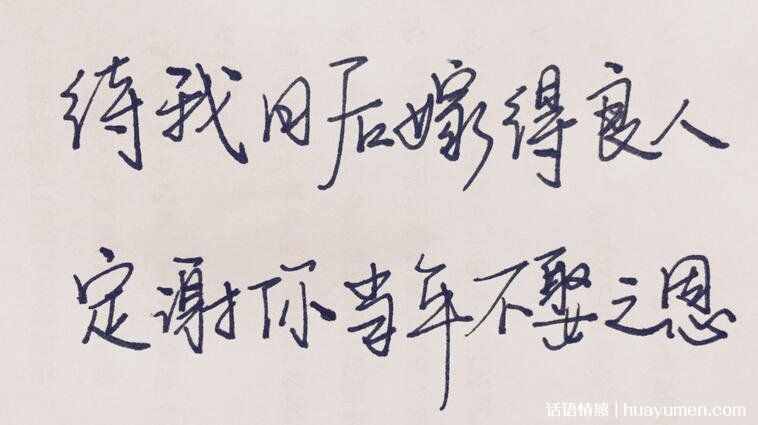 待我日后嫁得良人
定谢你当年不娶之恩
话语情感 | huayumen.com